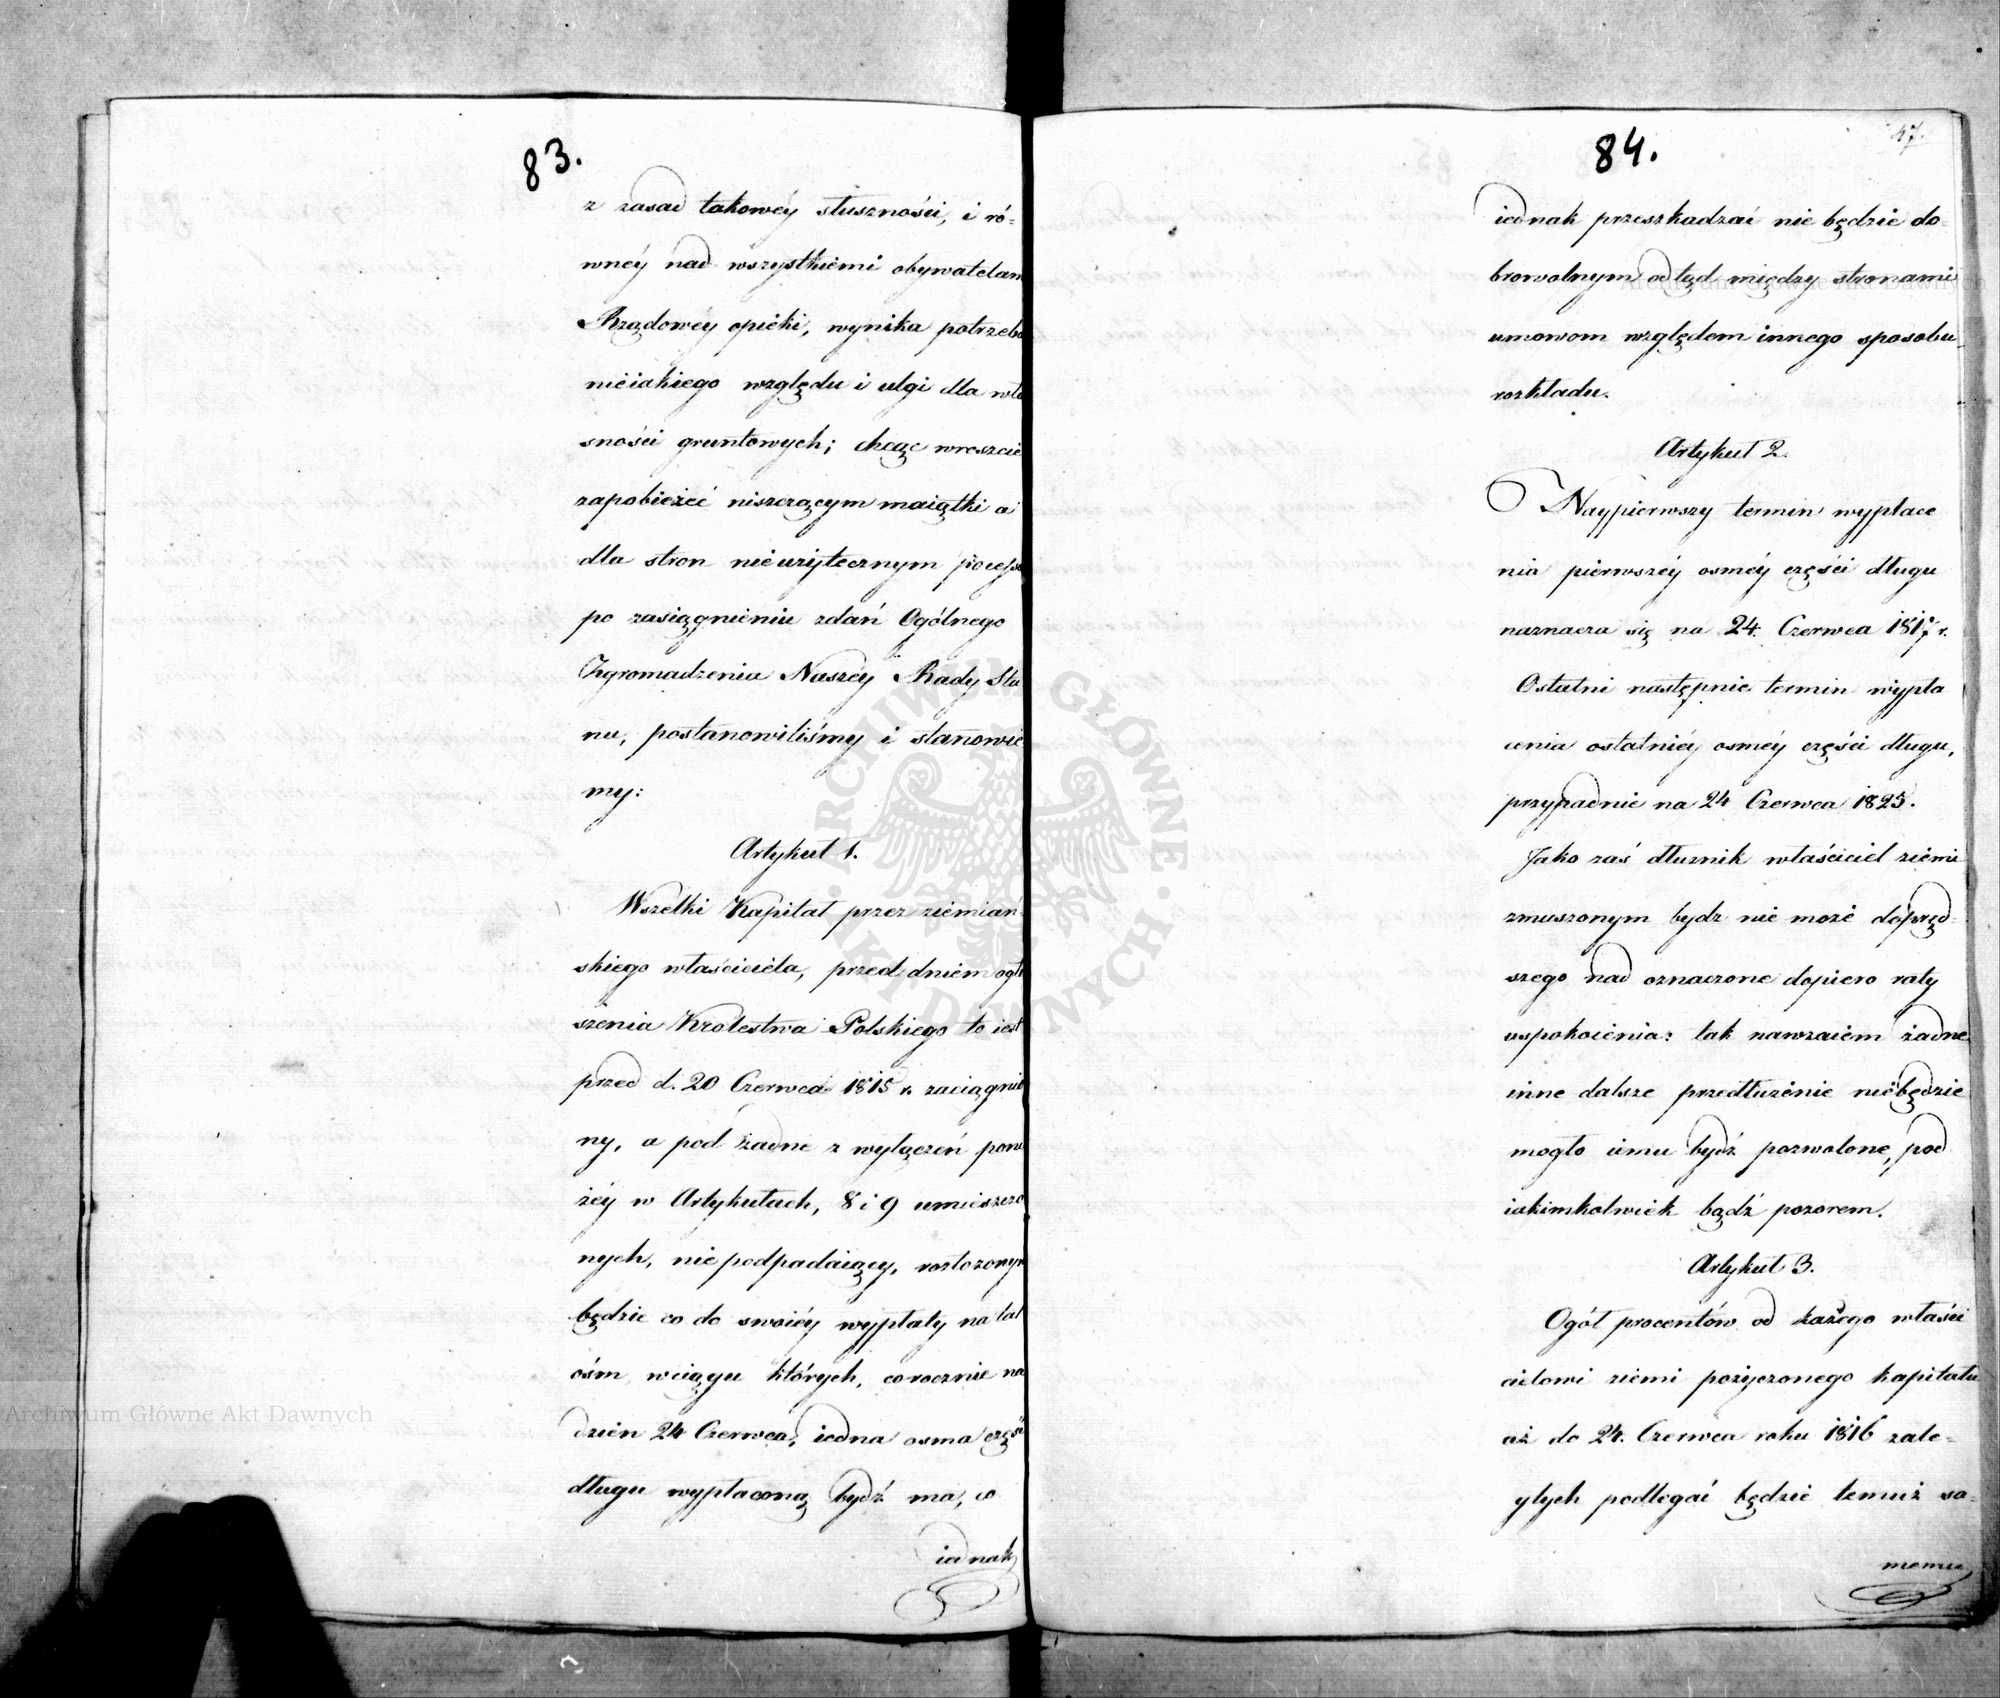 83.
z zasad takowéy słuszności, i ró-
wnéy nad wszystkiemi obywatelam
Rządowéy opieki, wynika potrzeba
nieiakiego względu i ulgi dla wła
sności gruntowych; chcąc wreszcie
zapobieżeć niszczącym maiątki a
dla stron nieużytecznym
po zasiągnieniu zdań Ogólnego
Zgromadzenia Naszéy Rady Sta
nu, postanowiliśmy i stanowie
my:
Artykuł 1.
Wszelki Kapitał przez ziemiań-
skiego właściciela, przed dniem ogło
szenia Krolestwa Polskiego to iest
przed d. 20 Czerwca 1815 r. zaciągnio
ny, a pod żadne z wyłączeń poni
żéy w Artykułach, 8 i 9 umieszczo
nych, nie podpadaiący, rozłożonym
będzie co do swoiéy wypłaty na lat
ośm, wciągu których, corocznie na
dzien 24 Czerwca, iedna osma część
długu wypłaconą bydź ma, co
iednak
84.
47.
iednak przeszkadzać nie będzie do-
browolnym odtąd między stronami
umowom względem innego sposobu
rozkładu.
Artykuł 2.
Naypierwszy termin wypłace
nia pierwszéy osméy części długu
naznacza się na 24. Czerwca 1817 r.
Ostatni następnie termin wypła
cenia ostatniéy osméy części długu,
przypadnie na 24 Czerwca 1825.
Jako zaś dłużnik właściciel ziemi
zmuszonym bydz nie może do pręd-
szego nad oznaczone dopiero raty
uspokoienia: tak nawzaiem żadne
inne dalsze przedłużenie niebędzie
mogło iemu bydź pozwolone, pod
iakimkolwiek bądź pozorem.
Artykuł 3.
Ogół procentów od każdego właści
cielowi ziemi pożyczonego kapitału
aż do 24. Czerwca roku 1816 zale-
głych podlegać będzie temuż sa-
memu
Archiwum Główne Akt Dawnych
Archiwum Główne Akt Dawnych
ARCHIWUM GŁÓWNE · AKT DAWNYCH ·